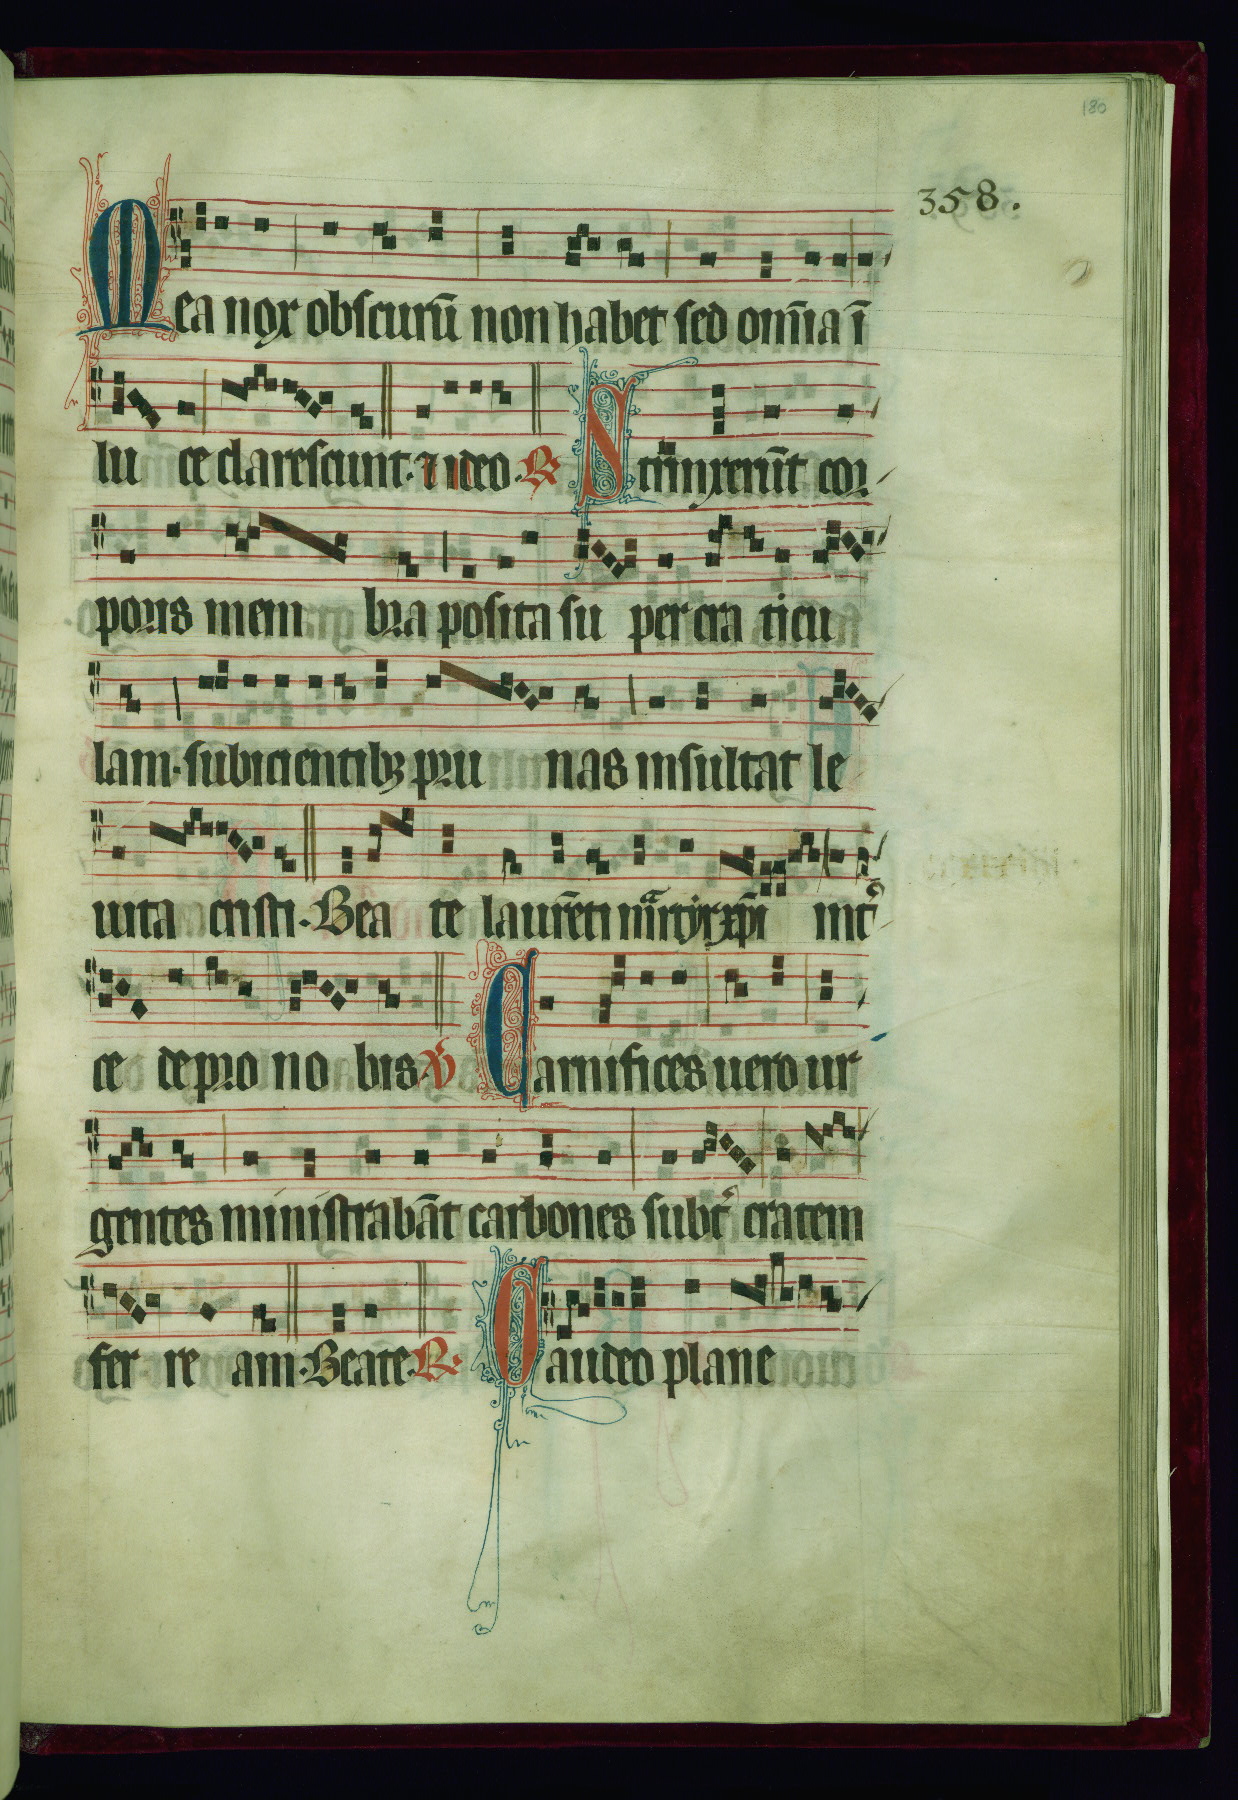 180
358.
Mea nox obscurū non habet sed om̄ia ī
lu ce clarescunt. ⁊ ideo. ℟ Strinxerūt cor
poris mem bra posita su per cra ticu
lam. subicientibꝫ pru nas insultat le
uita cristi. Bea te laurēti martyr xp̄i int
ce de pro no bis. ℣ Carnifices uero ur
gentes ministrabāt carbones subt̉ cratem
fer re am. Beate. ℟ Gaudeo plane